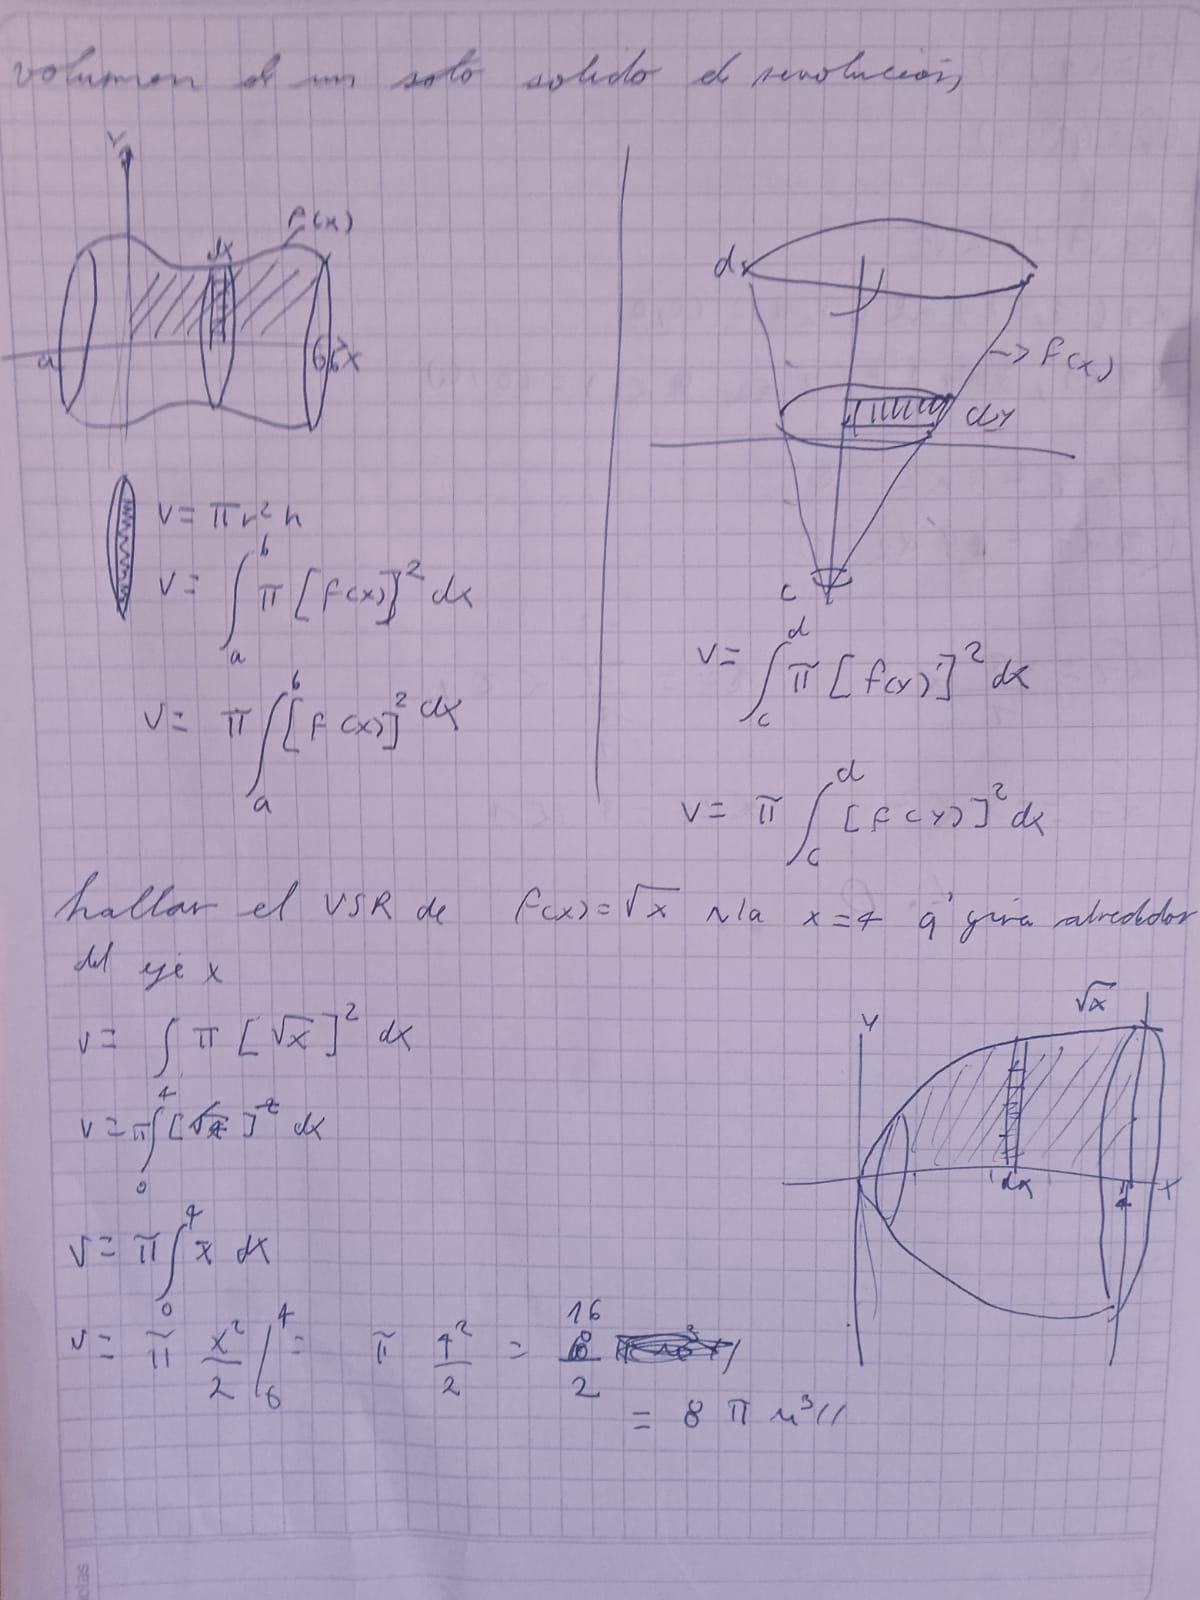 volumen d un solo solido d revolución
Y
f(x)
dx
a
b
x
V = πr²h
V = ∫_a^b π [f(x)]² dx
V = π ∫_a^b [f(x)]² dx
d
-> f(x)
dy
c
V = ∫_c^d π [f(y)]² dx
V = π ∫_c^d [f(y)]² dx
hallar el VSR de f(x) = √x x=4 q' gira alrededor
del eje x
V = ∫ π [√x]² dx
V = π ∫_0^4 [√x]² dx
V = π ∫_0^4 x dx
V = π x²/2 |_0^4 = π 4²/2 = 16/2
= 8 π u³//
Y
√x
dx
4
x